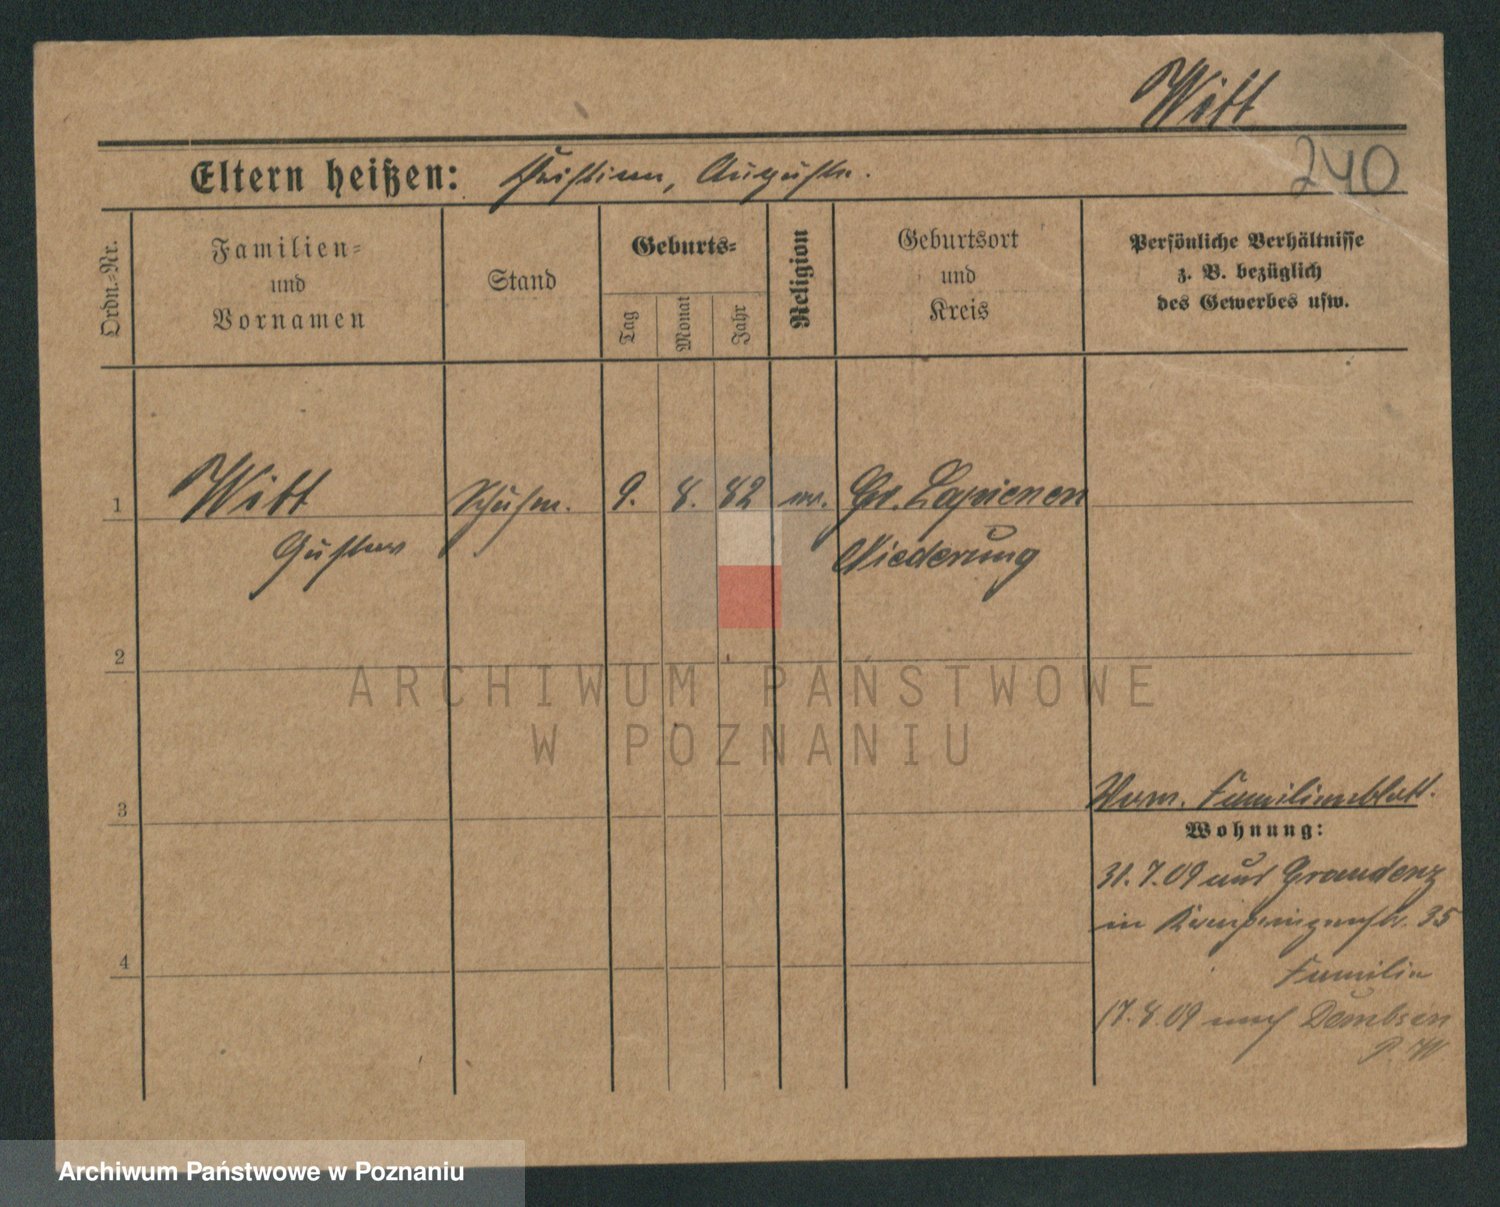 Witt
240
Eltern heißen: Kristian, Auguste.
Ordn.-Nr.
Familien-
und
Vornamen
Stand
Geburts-
Tag
Monat
Jahr
Religion
Geburtsort
und
Kreis
Persönliche Verhältnisse
z. B. bezüglich
des Gewerbes usw.
1 Witt Schuhm. 9. 8. 82 Gr. Lapienen
Gustav Niederung
2
ARCHIWUM PAŃSTWOWE
W POZNANIU
Familienblatt.
3
Wohnung:
31.7.09 aus Graudenz
in 35
4
Familie
17.8.09 nach Dembsen
P. W
Archiwum Państwowe w Poznaniu